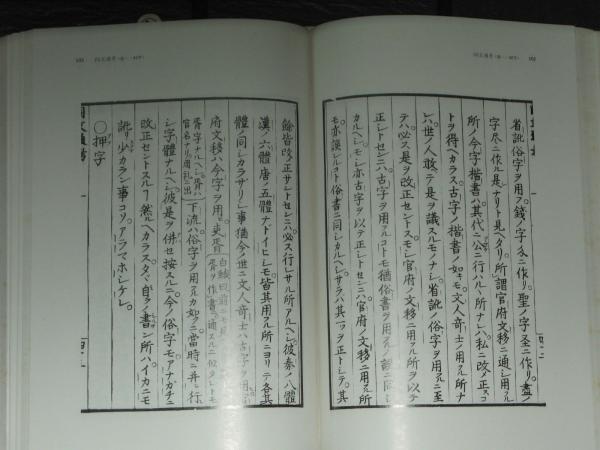 省訛俗字ヲ用フ錢ノ字㦮ニ作リ聖ノ字圣ニ作リ盡ノ
字尽ニ作ル是ナリト見ヘタリ所謂官府文移ニ通シ用フル
所ノ今字楷書ハ其代ニ公ニ行ハルヽ所ナレハ私ニ改メ正スコ
トヲ得ヘカラス古字ノ楷書ノ如キモ文人奇士ノ用フル所ナ
レハ世ノ人敢テ是ヲ議スルモノナシ省訛ノ俗字ヲ用フルニ至
テハ必ス是ヲ改正セントスモシ官府ノ文移ニ用フル所ヲ以テ
正シトセンニハ古字ヲ用フルコトモ猶俗書ヲ用フル
カルヘシモシ亦古字ヲ以テ正シトセンニハ官府ノ文移ニ用フル所
モ亦謬レルコト俗書ニ同シカルヘシサラハ其一ツヲ正トシテ其
餘皆改メ正サントセンニハ必ス行レサル所アルヘシ彼秦ノ八體
漢ノ六體唐ノ五體ナトイヒシモ皆其用フル所ニヨリテ各其
體ノ同シカラサリシ事猶今ノ世ニ文人奇士ハ古字ヲ用ヒ官
府文移ハ今字ヲ用ヒ吏胥
下流ハ俗字ヲ用フルカ如クニ當時ニ并ヒ行レ
シ字體ナルヘシ彼是ヲ併セ按スルニ今ノ俗字モアナガチニ
改正セントスルコト然ルヘカラスタヽ自ラノ書ン所ハイカニモ
訛リ少カラン事コソアラマホシケレ
〇押字